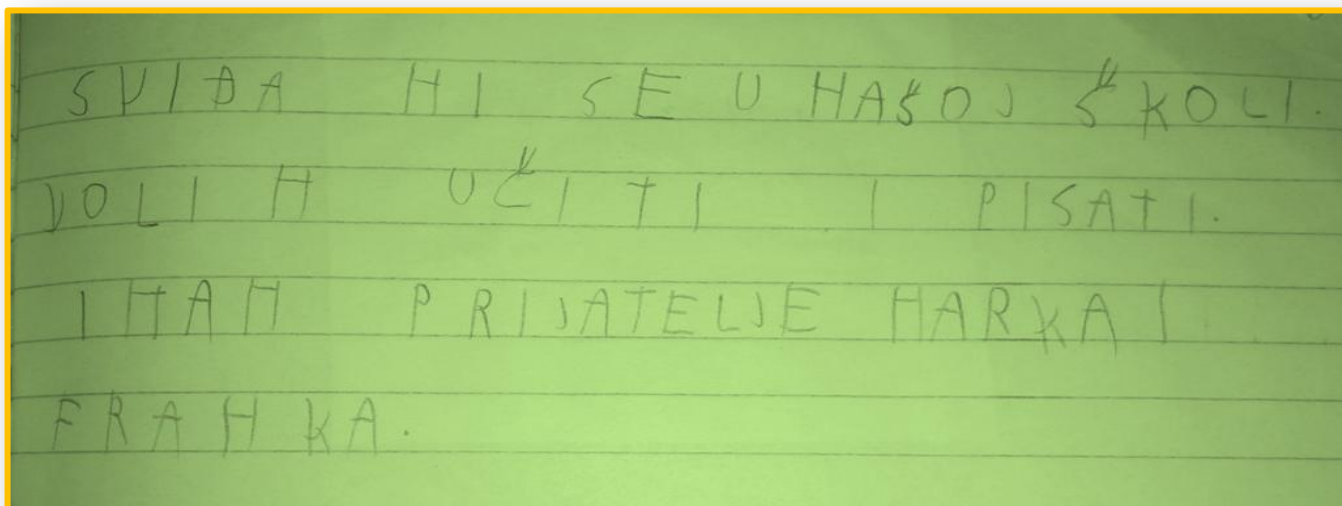 SVIĐA HI SE U HAŠOJ ŠKOLI.
VOLIH UČITI I PISATI.
IHAH PRIJATELJE HARKA I
FRAHKA.